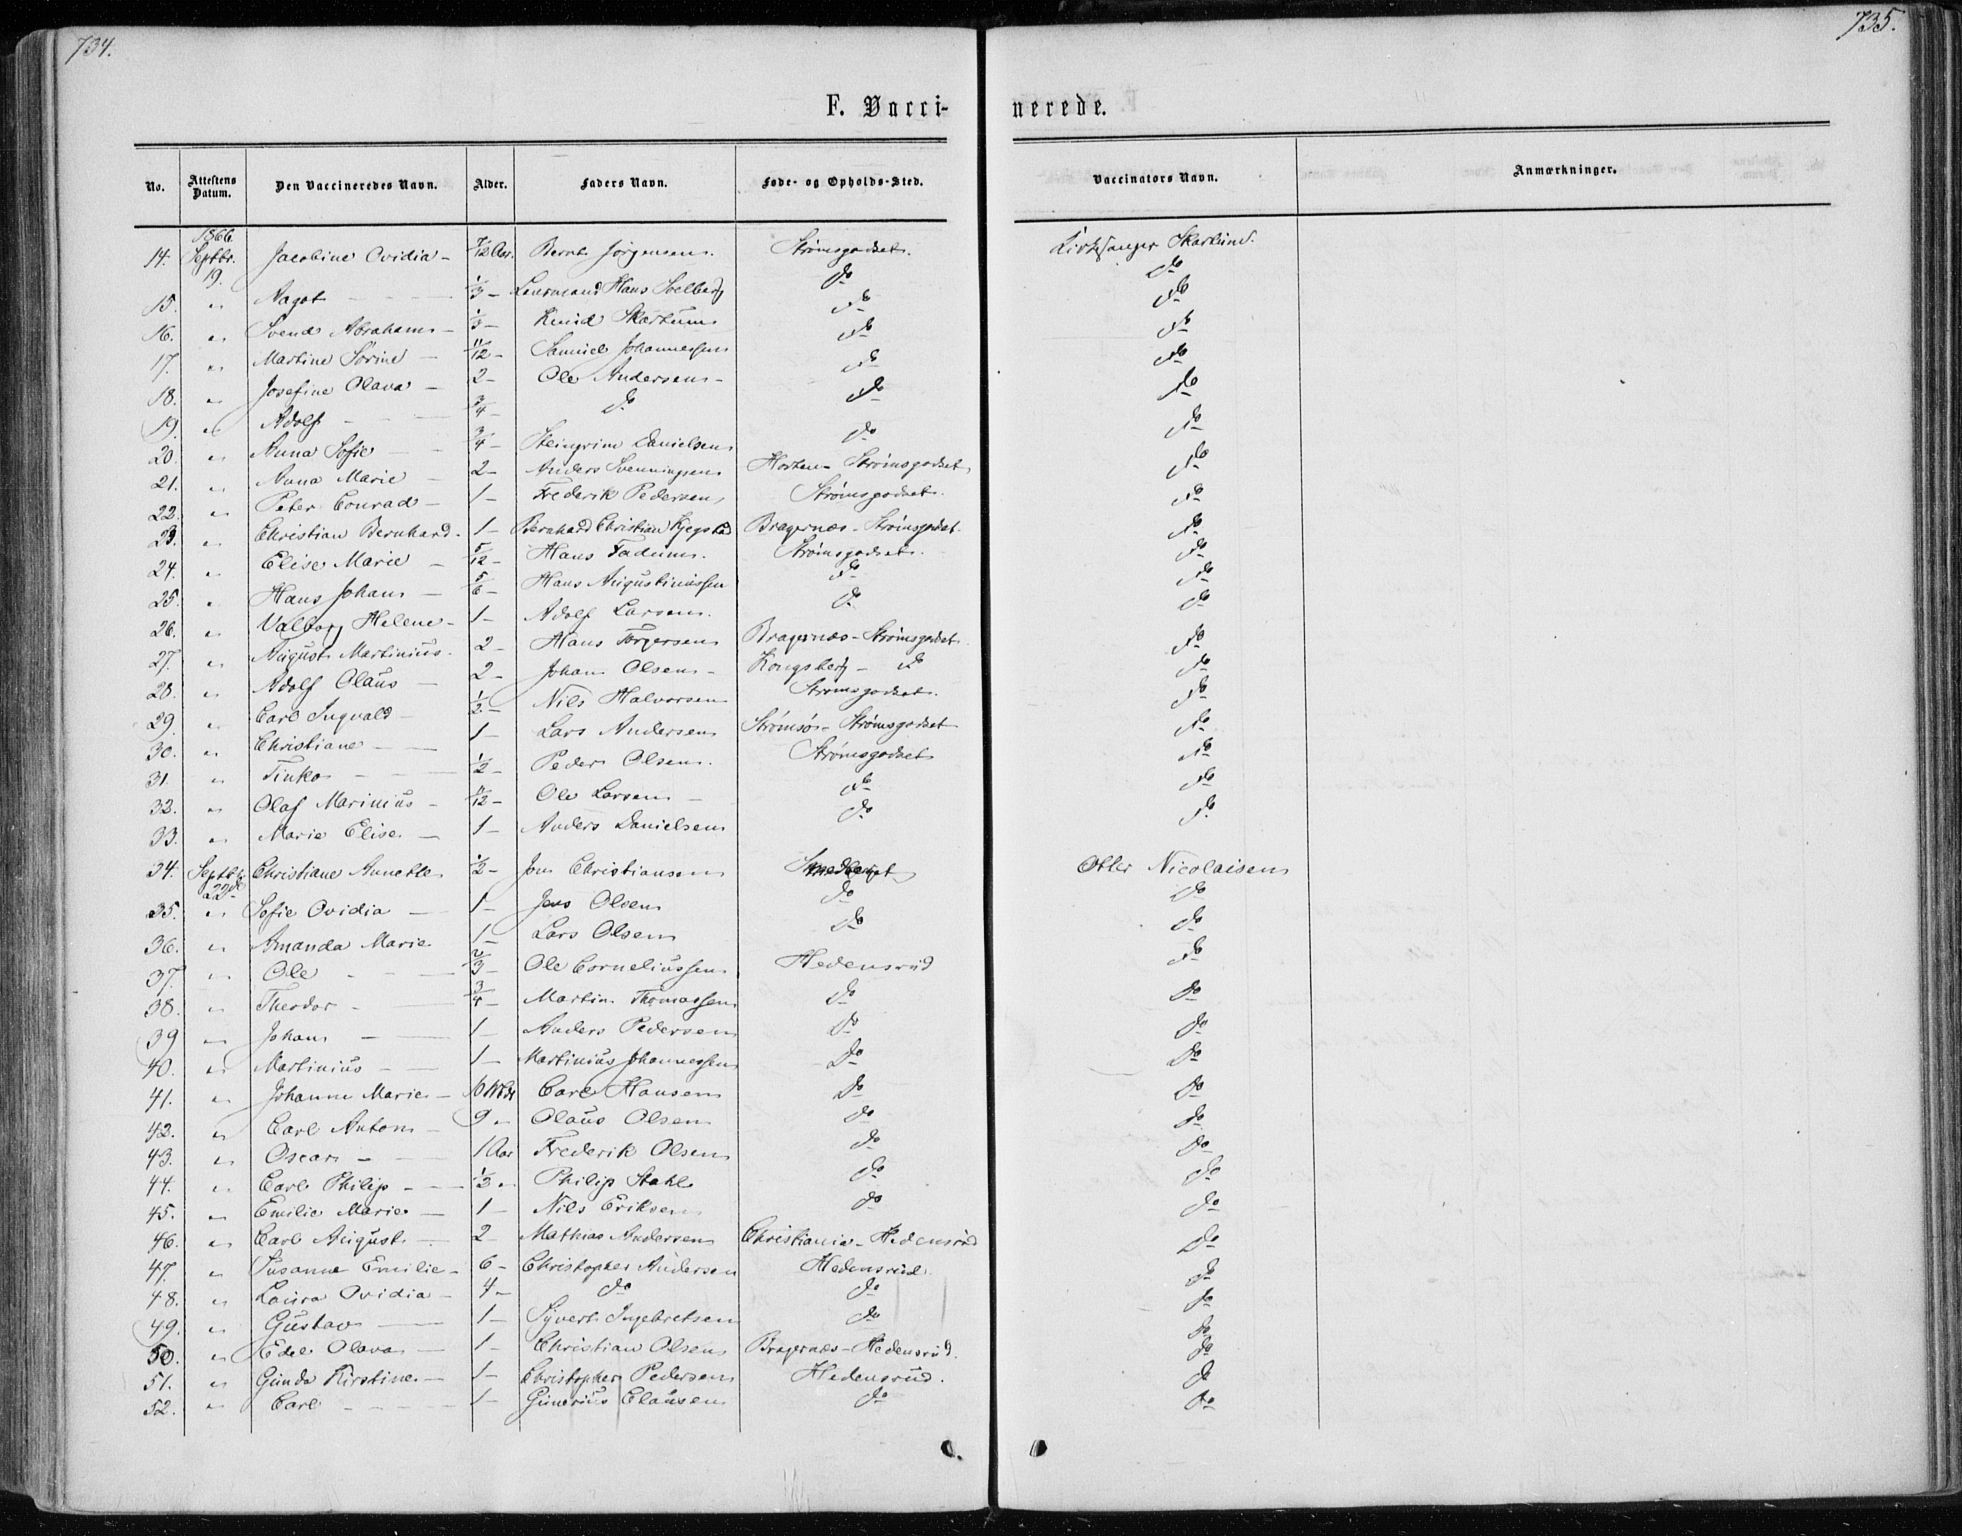 734.
735.
F. Vacci-
nerede.
No.
Attestens Datum.
Den Vaccineredes Navn.
Alder.
Faders Navn.
Føde- og Opholds-Sted.
Vaccinators Navn.
Anmærkninger.
1866
14. Septbr. 19. Jacobine Ovidia - 7/12 Aar. Bernt Jørgensen. Strømsgodset. Kirkesanger Skarlund.
15. " Aagot - 1/3 - Lensmand Hans Solberg do do
16. " Svend Abraham - 1/3 - Knud Skartum do do
17. " Martine Sørine - 11/12 - Samuel Johannessen do do
18. " Josefine Olava - 2 - Ole Andersen - do do
19. " Adolf - 3/4 - do do do
20. " Anna Sofie - 3/4 - Steingrim Danielsen do do
21. " Anna Marie - 2 - Anders Svenningsen Horten - Strømsgodset do
22. " Peter Conrad - 1 - Frederik Pedersen Strømsgodset. do
23. " Christian Bernhard. 1 - Bernhard Christian Bragernæs - Strømsgodset. do
24. " Elise Marie - 5/12 - Hans Fadum. Strømsgodset. do
25. " Hans Johan - 5/6 - Hans Augustinussen do do
26. " Valborg Helene - 1 - Adolf Larsen. do do
27. " August Martinius. 2 - Hans Torgersen Bragernæs - Strømsgodset. do
28. " Adolf Olaus - 2 - Johan Olsen - Kongsberg - do do
29. " Carl Ingvald - 1/2 - Nils Halvorsen Strømsgodset. do
30. " Christiane - 1 - Lars Andersen Strømsø - Strømsgodset do
31 " Tinka - 1/2 - Peder Olsen. Strømsgodset do
32. " Olaf Marinius - 11/12 - Ole Larsen - do do
33. " Marie Elise. - 1 - Anders Danielsen do do
34. Septbr. 22de Christiane Annette 1/2 - Jon Christiansen Otter Nicolaisen
35. " Sofie Ovidia - 1 - Jens Olsen do do
36. " Amanda Marie 1 - Lars Olsen do do
37. " Ole - 2/3 - Ole Corneliussen Hedensrud do
38. " Theodor - 3/4 - Martin Thomassen do do
39 " Johan - 1 - Anders Pedersen do do
40. " Martinius - 1 - Martinius Johannessen Do Do
41. " Johanne Marie - 10 Carl Hansen Do Do
42. " Carl Anton - 9 " Olaus Olsen do do
43. " Oscar - 1 Aar Frederik Olsen do do
44. " Carl Philip - 1/3 " Philip Stahl do do
45. " Emilie Marie - 1 - Nils Eriksen do do
46. " Carl August - 2 - Mathias Andersen Christiania - Hedensrud do
47. " Susanne Emilie - 6 - Christopher Andersen Hedensrud. do
48. " Laura Ovidia - 4 - do do do
49. " Gustav - 1 - Syvert Ingebretsen do do
50. " Edel Olava - 1 - Christian Olsen Bragernæs - Hedensrud. do
51. " Gunda Kirstine - 1 - Christopher Pedersen Hedensrud. do
52. " Carl - 1 - Gunerius Clausen do do